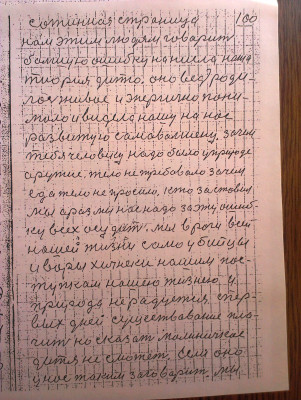 сотинная страница 100
нам этим людям говорит
большую ошибку на несла наша
теория дитю, оно роди-
лось живое и энергично пони-
мало и видело нашу на нас
развитую самоволщену. зачем
тебя человеку надо было у природе
оружие, тело не требовало зачем
еда тело не просило, кто заставил
мы а разм нас надо за эту ошиб-
ку всех осудит. мы враги всей
нашей жизни само убейцы
и воры хичнеки нашим пос-
тупкам нашею жизнею и
природа не радуется с пер-
вых дней существование пла-
чит но сказат малиничкое
дитя не сможет. если оно
у нас таким заговарит. мы